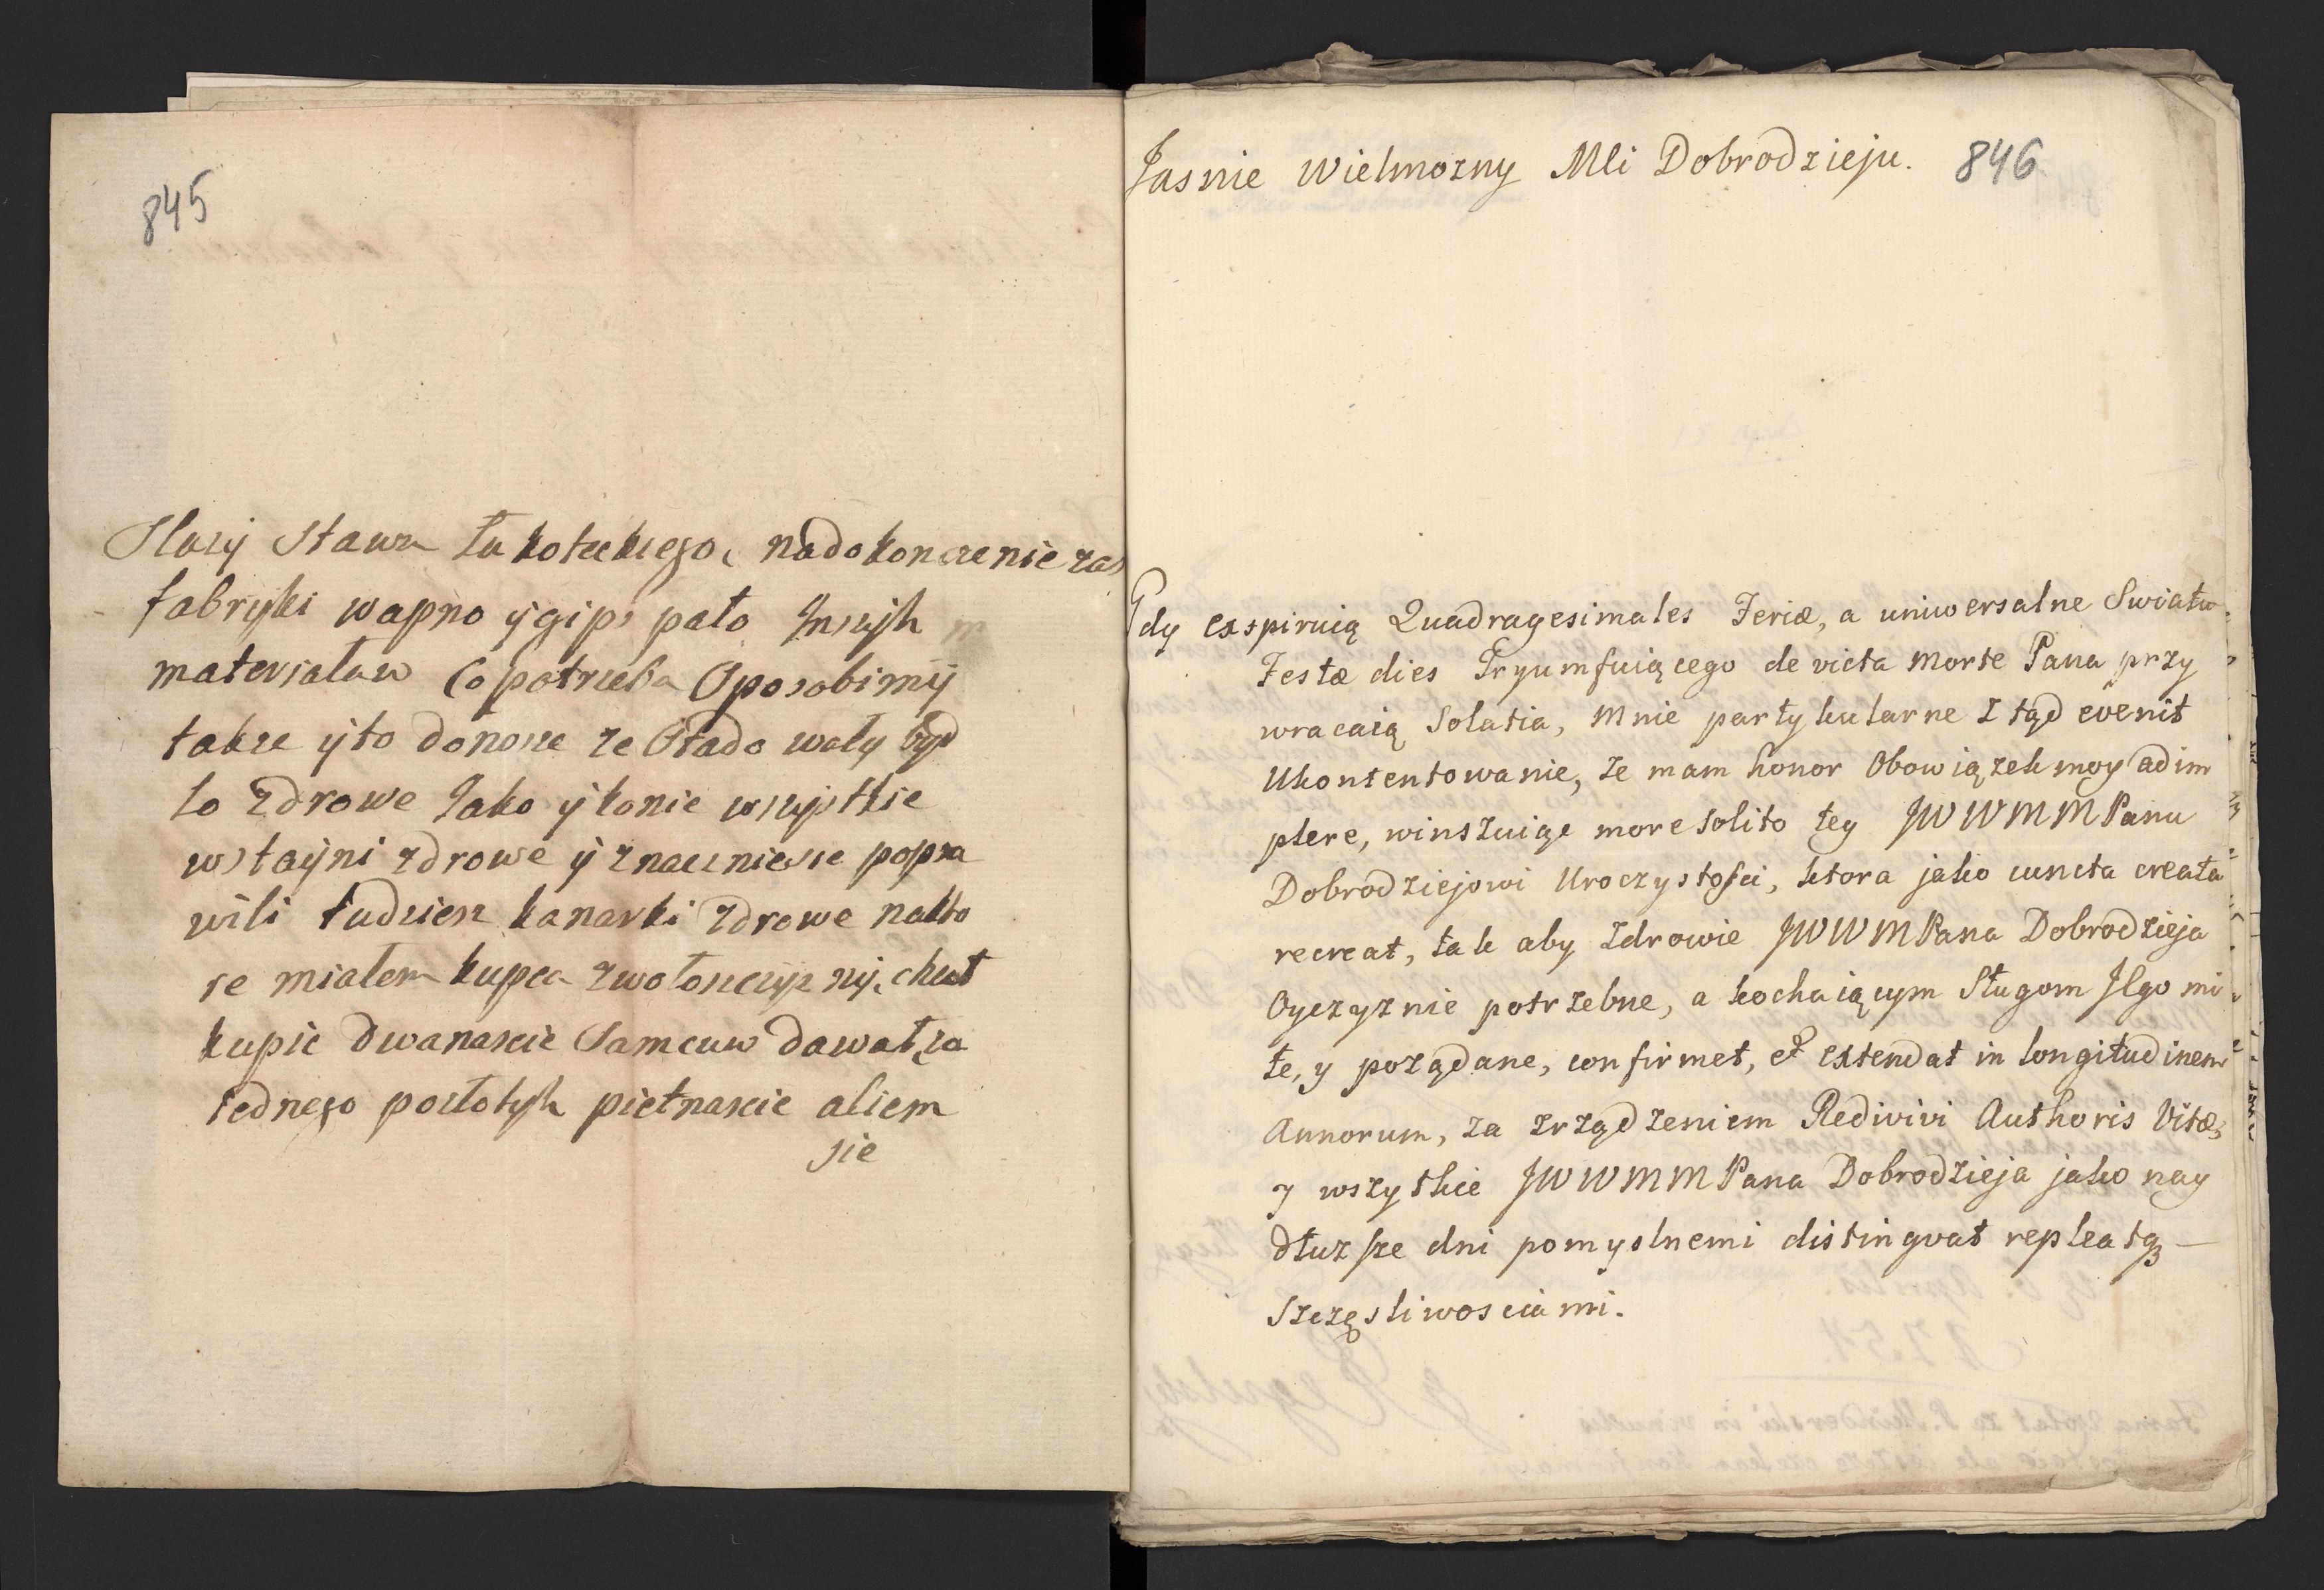 845
Słuzy Stawu Łukoteckiego, nadokonczenie zas
fabryki wapno ÿ gips pato Innÿh
materiałuw Co potrzeba Sposobimÿ
takze ÿto donosze ze Stado wały byd
ło zdrowe Jako ÿ konie wszÿstkie
wstaÿni zdrowe ÿ znacznie sie popra
wili tudziesz kanarki zdrowe nakto
re miałem kupca chcat
kupic dwanascie Samcuw dawał za
iednego pozłotyh pietnascie aliem
sie
846
Jasnie Wielmozny Mli Dobrodzieju.
Gdy exspiruią Quadragesimales Feriæ, a uniwersalne Swiatu
Festæ dies Tryumfuiącego de victa Morte Pana przy
wracaią Solatia, mnie partykularne Ztąd evenit
Ukontentowanie, ze mam honor Obowiązek moy adim
plere, winszuiąc more solito tey JWWMMPanu
Dobrodziejowi Uroczystosci, ktora jako cuncta creata
recreat, tak aby zdrowie JWWMPana Dobrodzieja
Oyczyznie potrzebne, a kochaiącym Sługom Jego mi
łe, y pożądane, confirmet, et extendat in longitudinem
Annorum, za zrządzeniem Redivivi Authoris Vitæ,
y wszystkie JWWMMPana Dobrodzieja jako nay
dłuzsze dni pomyslnemi distingvat repleatq3 —
Szczęsliwosciami.